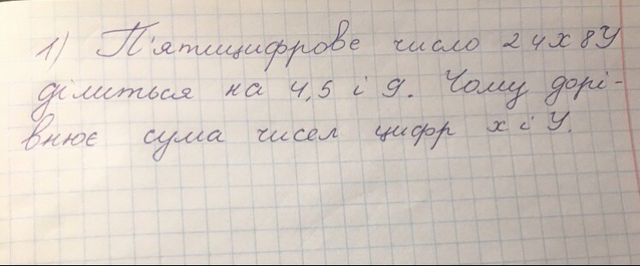 1) П'ятицифрове число 24X8Y
ділиться на 4,5 і 9. Чому дорі-
внює сума чисел цифр x і У.